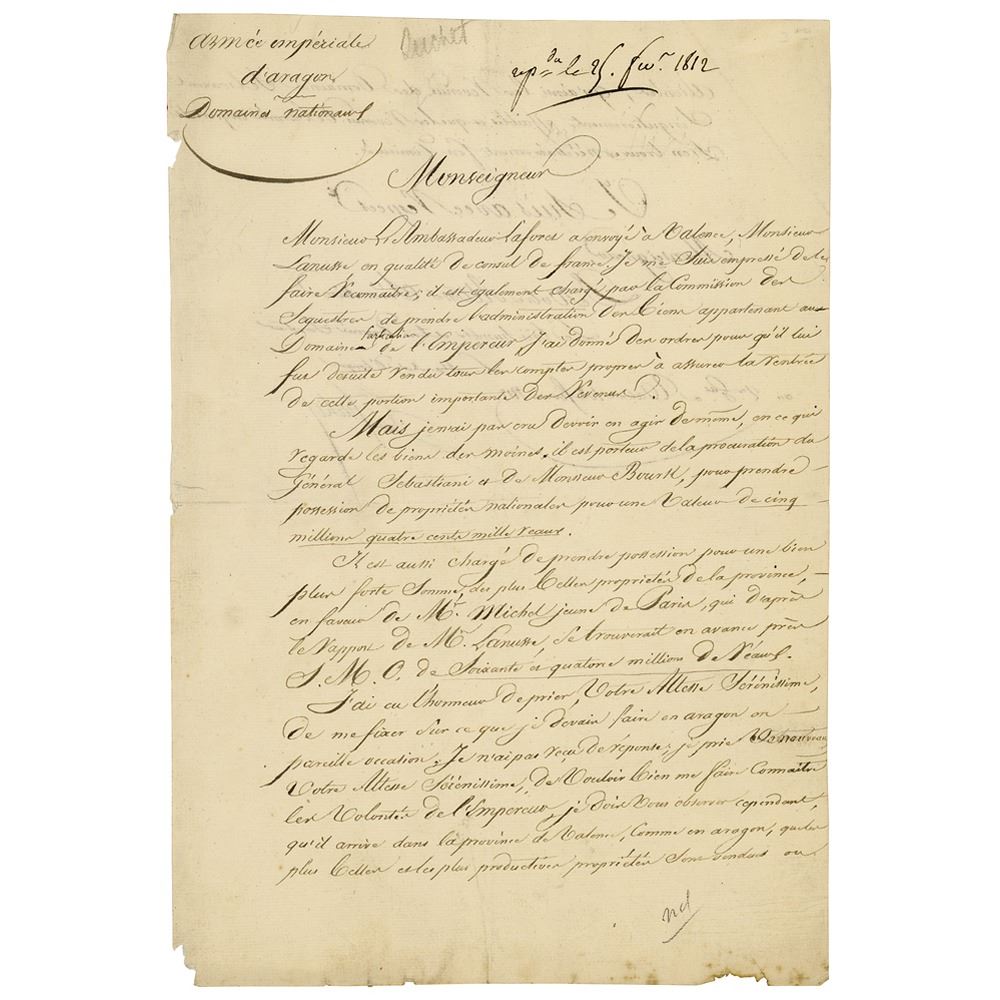 armée impériale
d'aragon
Domaines nationaux
Suchet
rep.du le 25. fev.r 1812
Monseigneur
Monsieur l'Ambassadeur Laforet a envoyé à Valence, Monsieur
Lanusse en qualité de consul de france, Je me suis empressé de le
faire reconnaitre, il est également chargé par la Commission des
Sequestres de prendre l'administration des biens appartenant au
Domaine particulier de l'Empereur, J'ai donné des ordres pour qu'il lui
fut desuite rendu tous les comptes propres à assurer la rentrée
de cette portion importante des revenus.
Mais je n'ai pas cru devoir en agir de même, en ce qui
regarde les biens des moines. il est porteur de la procuration du
Général Sebastiani et de Monsieur Bourk, pour prendre
possession de propriétés nationales pour une Valeur de cinq
millions quatre cents mille reaux.
Il est aussi chargé de prendre possession pour une bien
plus forte Somme, des plus belles propriétés de la province,
en faveur de Mr. Michel jeune de Paris, qui d'après
le rapport de Mr. Lanusse, Se trouverait en avance près
S. M. C. de Soixante et quatorze millions de reaux.
J'ai eu l'honneur de prier, Votre Altesse Sérénissime,
de me fixer sur ce que je devais faire en aragon en
pareille occasion. Je n'ai pas reçu de réponse; je prie de nouveau
Votre Altesse Sérénissime, de Vouloir bien me faire Connaitre
les Volontés de l'Empereur, je dois Vous observer cependant,
qu'il arrive dans la province de Valence, Comme en aragon, que les
plus belles et les plus productives propriétés Sont vendues ou